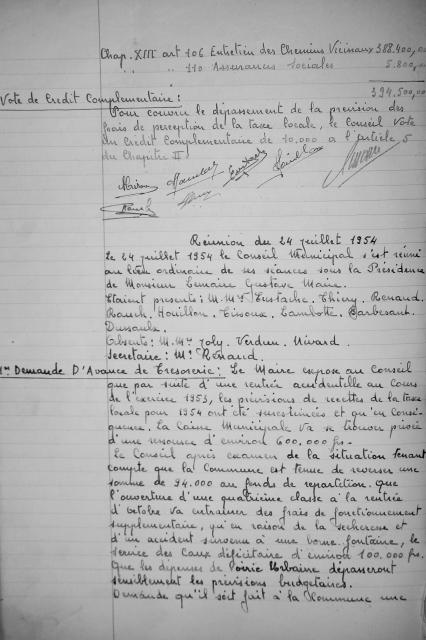 Chap. XIII art 106 Entretien des Chemins Vicinaux 388.400,00
" " " 110 Assurances sociales 5.800,00
394.500,00
Vote de Credit Complementaire :
Pour couvrir le dépassement de la prevision des
frais de perception de la taxe locale, le Conseil vote
un Crédit Complementaire de 10,000 a l'article 5
du Chapitre II
Réunion du 24 juillet 1954
Le 24 juillet 1954 le Conseil Municipal s'est réuni
au lieu ordinaire de ses séances sous la Présidence
de Monsieur Lemaire Gustave Maire.
Etaient presents : M.Mrs Eustache, Thiery, Renaud,
Rauch, Houillon, Tisoux, Lambotte, Barbesant,
Dussaulx.
Absents : M.Mrs Joly, Verdun, Nivard.
Secretaire : Mr Renaud.
1re Demande D'Avance de Tresorerie : Le Maire expose au Conseil
que par suite d'une rentrée accidentelle au cours
de l'exercice 1953, les prévisions de recettes de la taxe
locale pour 1954 ont été surestimées et qu'en Consé-
quence, la Caisse Municipale va se trouver privée
d'une ressource d'environ 600,000 frs.
Le Conseil après examen de la situation tenant
compte que la Commune est tenue de reverser une
somme de 94.000 au fonds de repartition. Que
l'ouverture d'une quatrième classe à la rentrée
d'octobre va entraîner des frais de fonctionnement
supplementaire, qu'en raison de la secheresse et
d'un accident survenu à une borne fontaine, le
service des Eaux déficitaire d'environ 100.000 frs.
Que les dépenses de voirie Urbaine dépasseront
sensiblement les prévisions budgetaires.
Demande qu'il soit fait à la Commune une